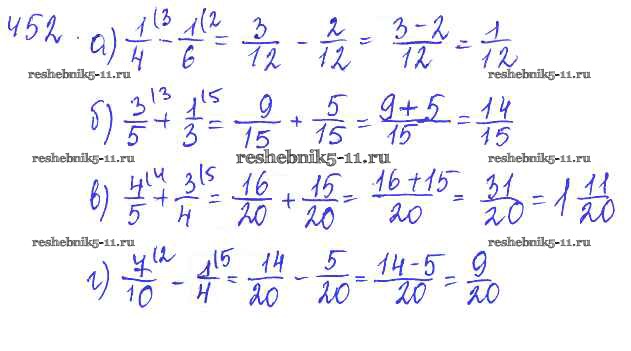 452. а) 1/4 (3 - 1/6 (2 = 3/12 - 2/12 = 3-2/12 = 1/12
reshebnik5-11.ru reshebnik5-11.ru
б) 3/5 (3 + 1/3 (5 = 9/15 + 5/15 = 9+5/15 = 14/15
reshebnik5-11.ru reshebnik5-11.ru reshebnik5-11.ru
в) 4/5 (4 + 3/4 (5 = 16/20 + 15/20 = 16+15/20 = 31/20 = 1 11/20
reshebnik5-11.ru reshebnik5-11.ru
г) 7/10 (2 - 1/4 (5 = 14/20 - 5/20 = 14-5/20 = 9/20